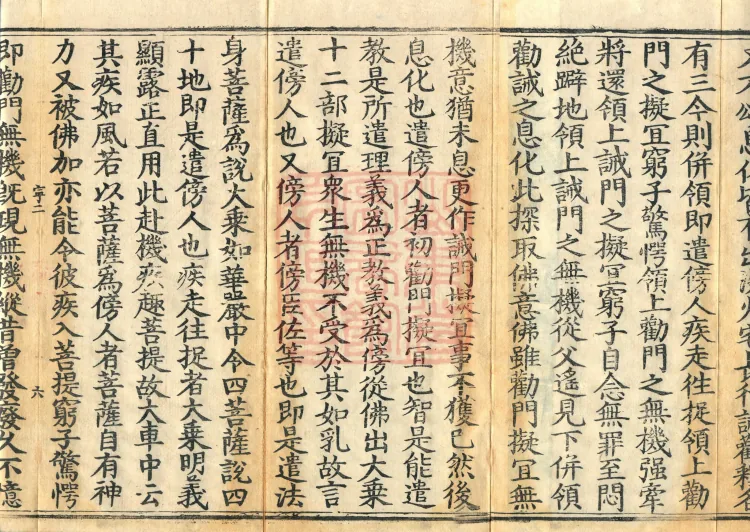 有三今則併領即遣傍人疾走往捉領上勸
門之擬冝窮子驚愕領上勸門之無機强牽
將還領上誡門之擬冝窮子自念無罪至悶
絶躃地領上誡門之無機從父遙見下併領
勸誡之息化此探取佛意佛雖勸門擬冝無
機意猶未息更作誡門擬冝事不獲已然後
息化也遣傍人者初勸門擬冝也智是能遣
教是所遣理義為正教義為傍從佛出大乗
十二部擬冝衆生無機不受於其如乳故言
遣傍人也又傍人者傍臣佐等也即是遣法
身菩薩爲說大乗如華嚴中令四菩薩說四
十地即是遣傍人也疾走往捉者大乗明義
顯露正直用此赴機疾趣菩提故大車中云
其疾如風若以菩薩爲傍人者菩薩自有神
力又被佛加亦能令彼疾入菩提窮子驚愕
字二
六
即勸門無機旣現無機縱昔曽發廢久不憶